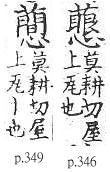 莫耕切屋
上瓦也
莫耕切屋
上瓦丨也
p.349 p.346